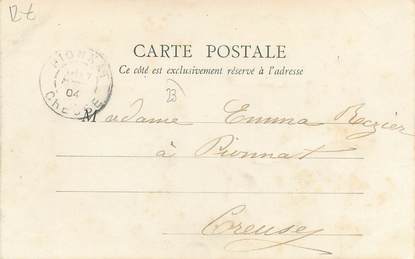 CARTE POSTALE
Ce côté est exclusivement réservé à l'adresse
PIONNAT
04
CREUSE
23
Madame Emma Rozier
à Pionnat
Creuse